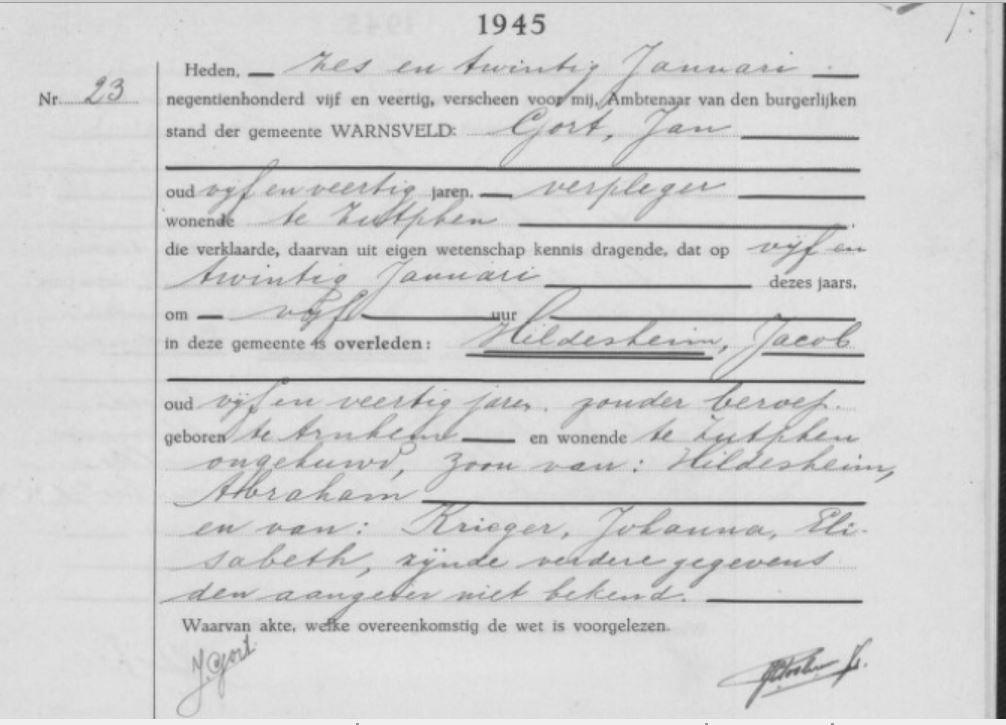 1945
Heden, zes en twintig Januari
Nr. 23
negentienhonderd vijf en veertig, verscheen voor mij, Ambtenaar van den burgerlijken
stand der gemeente WARNSVELD: Gort, Jan
oud vijf en veertig jaren, verpleger
wonende te Zutphen
die verklaarde, daarvan uit eigen wetenschap kennis dragende, dat op vijf en
twintig Januari dezes jaars,
om vijf uur
in deze gemeente is overleden: Hildesheim, Jacob
oud vijf en veertig jaren, zonder beroep.
geboren te Arnhem en wonende te Zutphen
ongehuwd, zoon van: Hildesheim,
Abraham
en van: Krieger, Johanna, Eli-
sabeth, zijnde verdere gegevens
den aangever niet bekend.
Waarvan akte, welke overeenkomstig de wet is voorgelezen.
J. Gort.